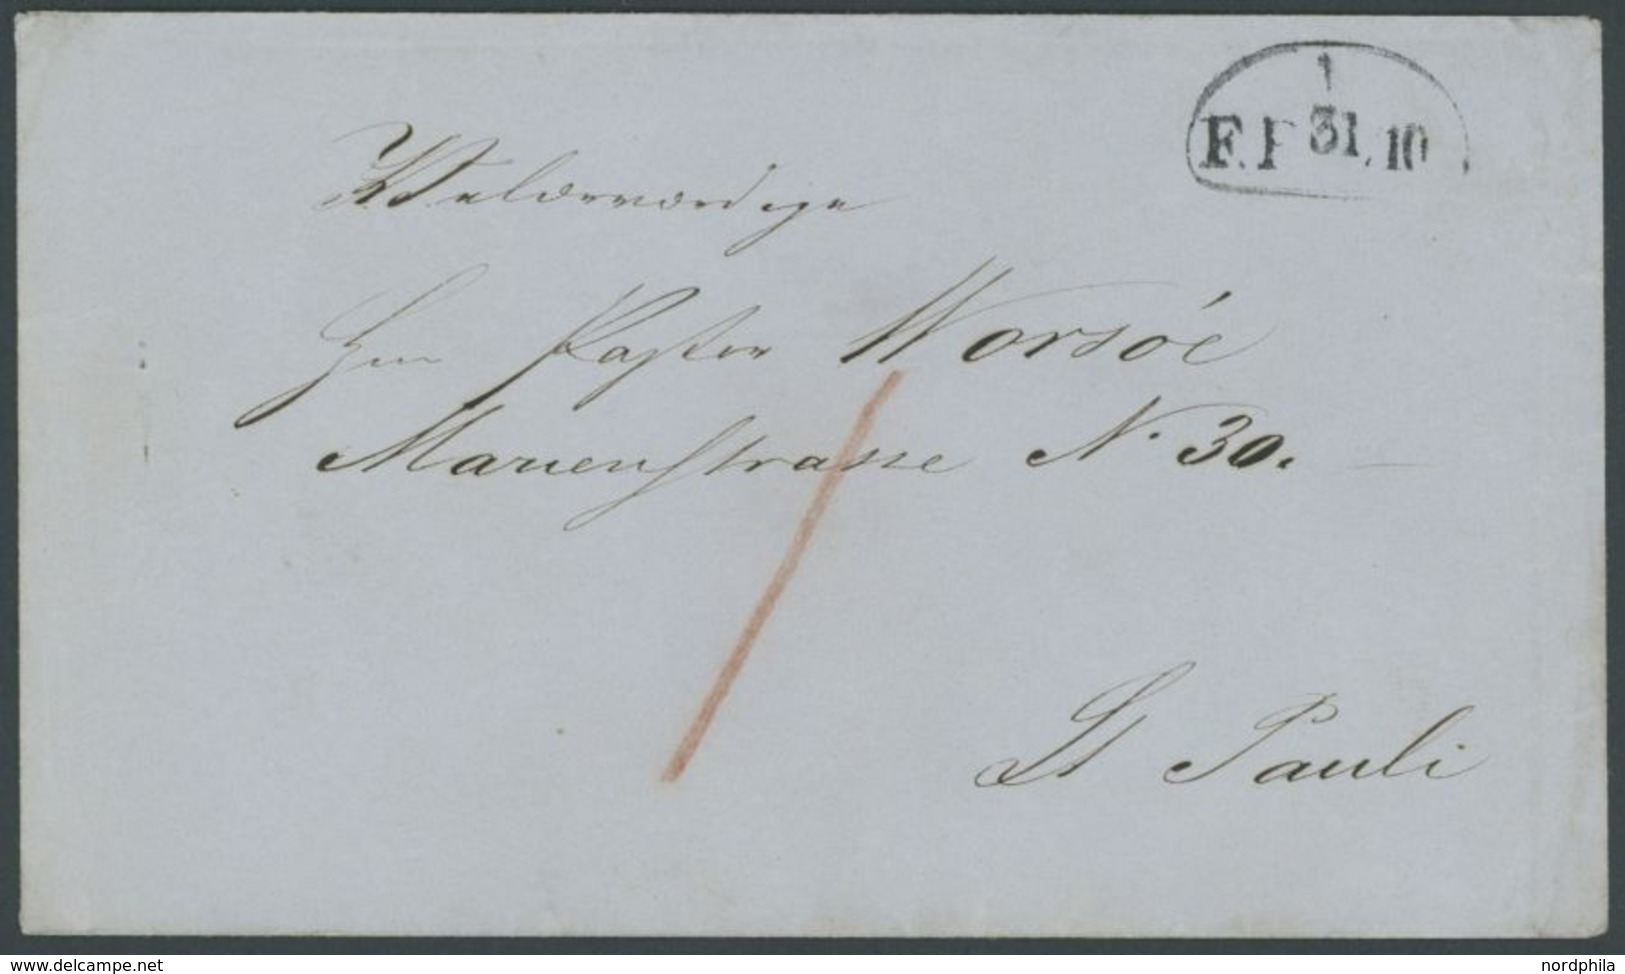 1
F.P 31.10
Velærværdige
Herr Pastor Worsóe
Marienstrasse N. 30.
St Pauli
www.delcampe.net
nordphila